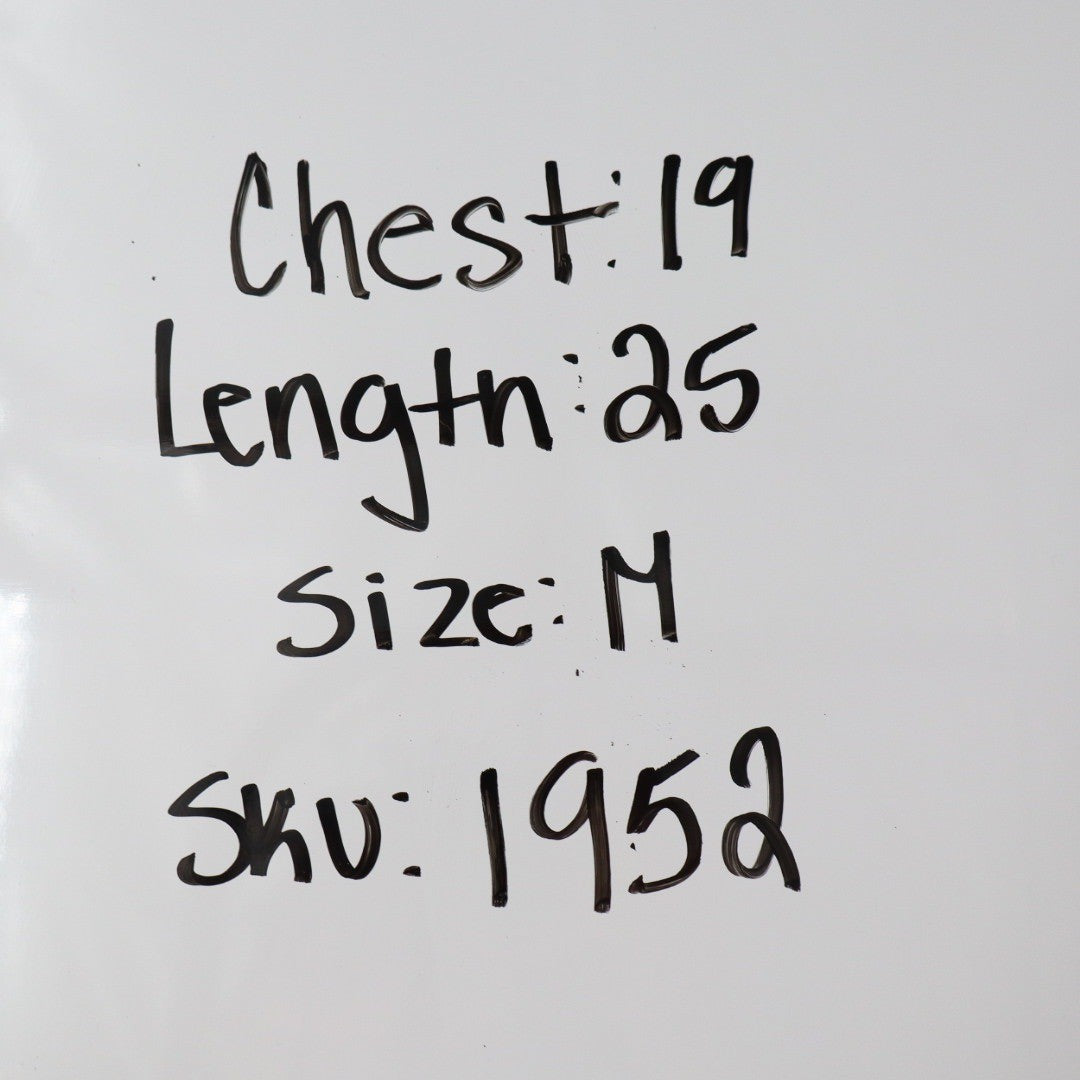 Chest: 19
Length: 25
Size: M
SKU: 1952